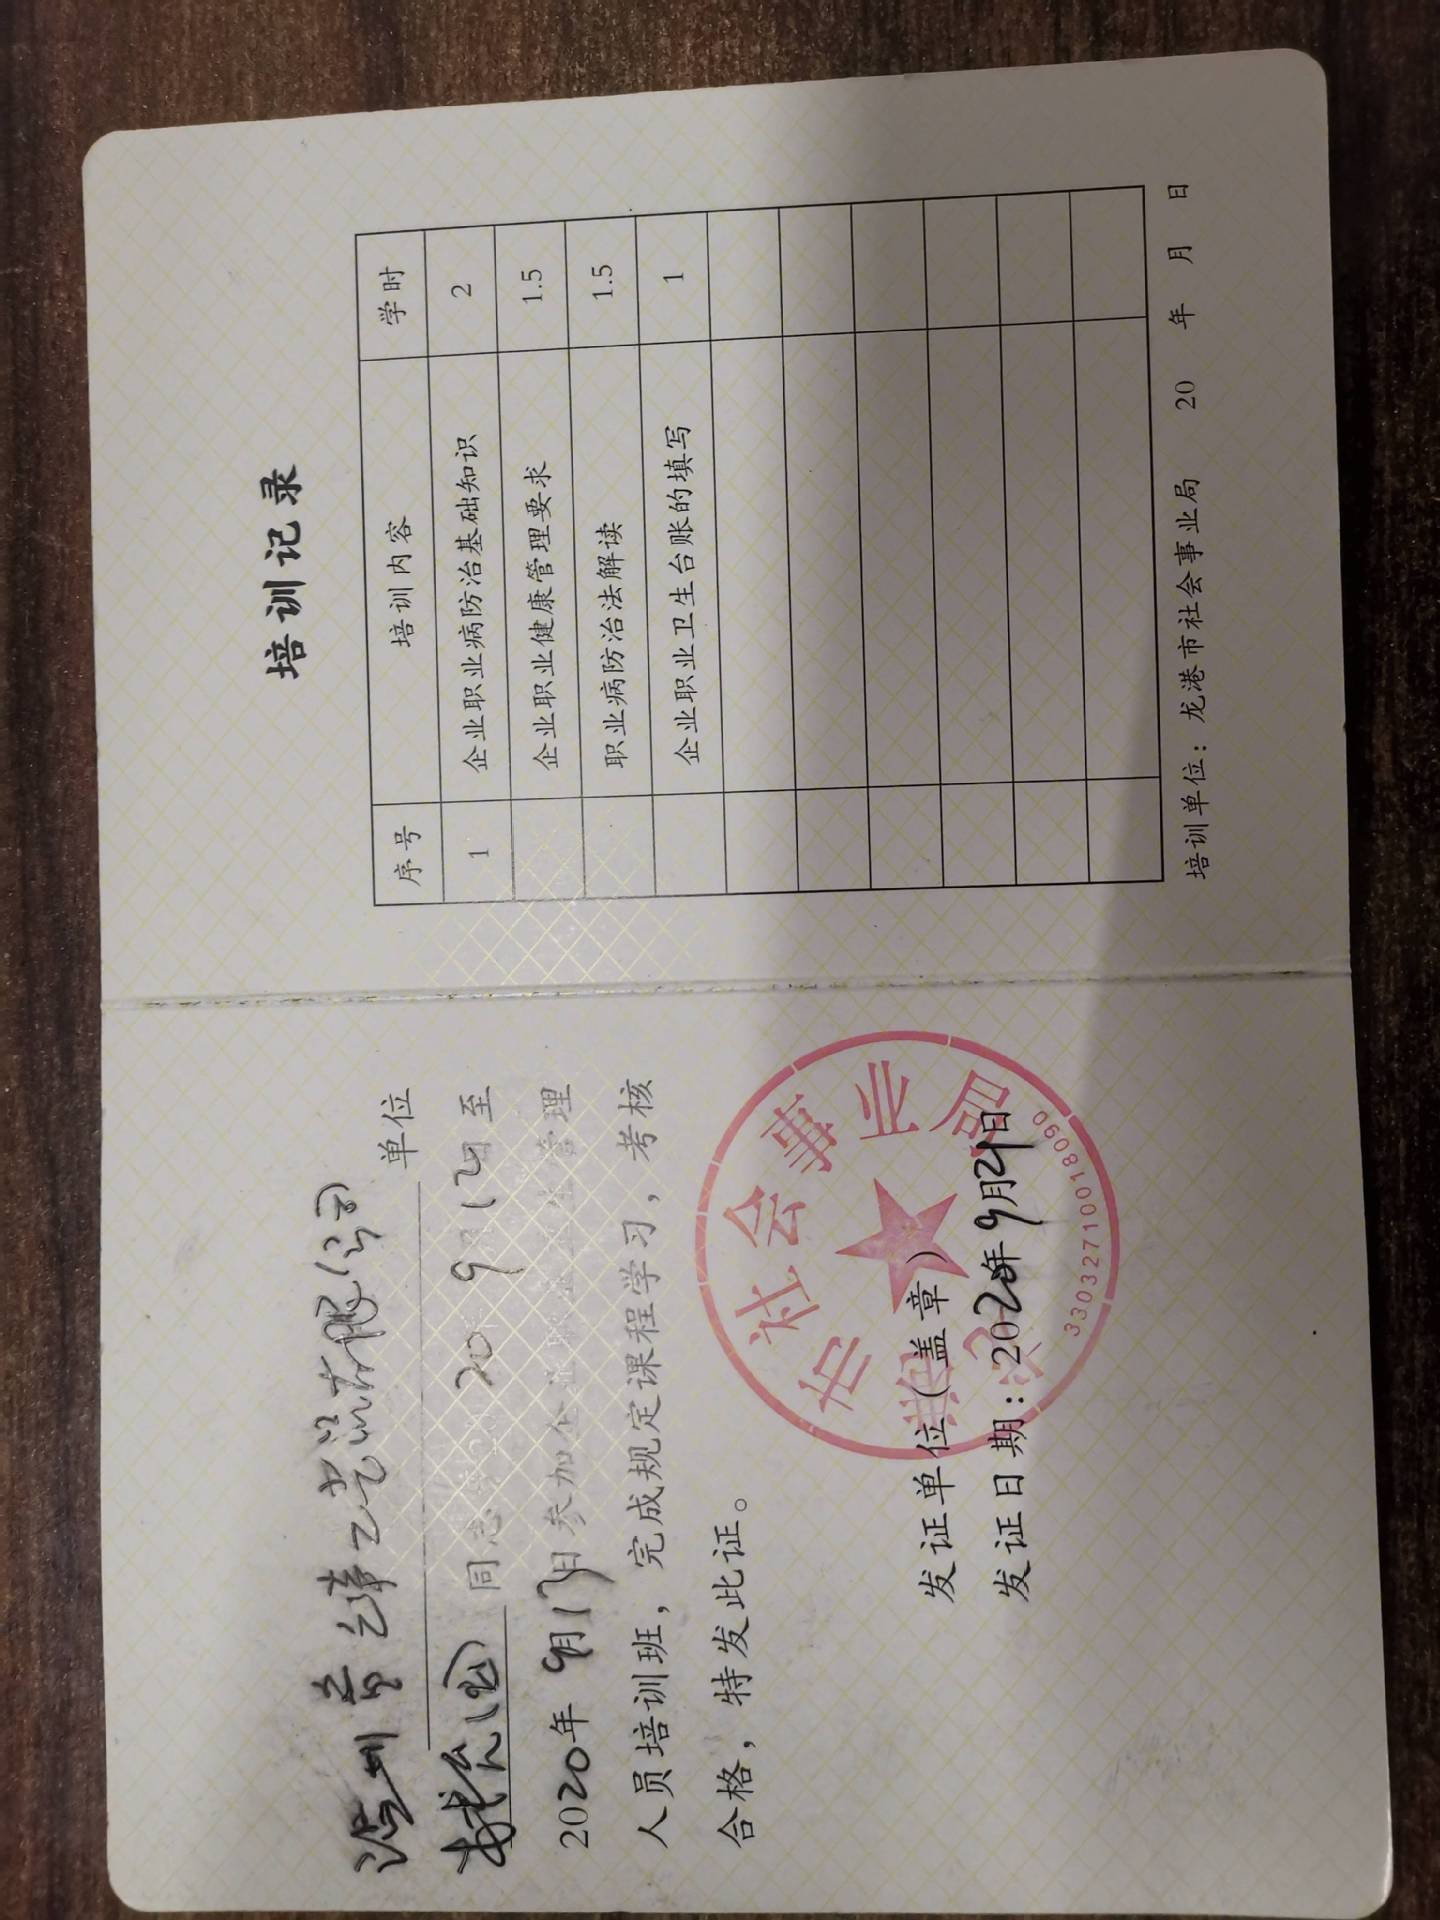 工艺品有限公司 单位
同志 2020年9月12日至
2020年9月13日参加企业职业卫生管理
人员培训班，完成规定课程学习，考核
合格，特发此证。
发证单位（盖章）
发证日期：2020年9月21日
市社会事业局
33032710018090
培训记录
序号 培训内容 学时
1 企业职业病防治基础知识 2
企业职业健康管理要求 1.5
职业病防治法解读 1.5
企业职业卫生台账的填写 1
培训单位：龙港市社会事业局 20 年 月 日